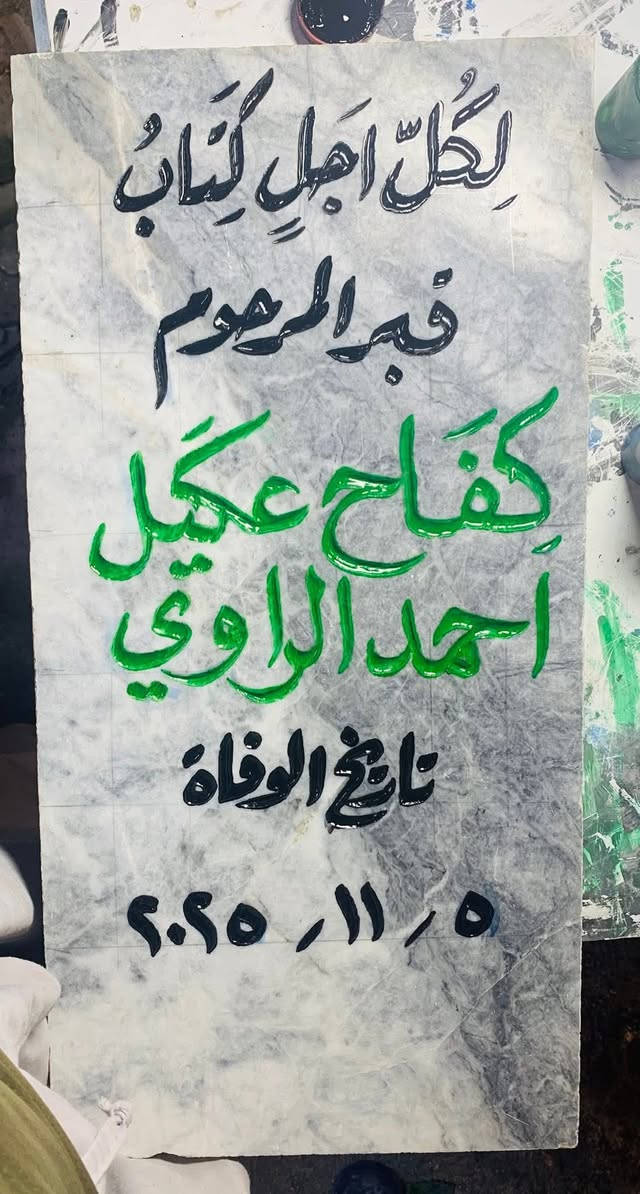 لِكُلّ اَجلٍ كِتَابُ
قبر المرحوم
كِفَاح عكَيل
احمد الراوي
تاريخ الوفاة
٥ / ١١ / ٢٠٢٥